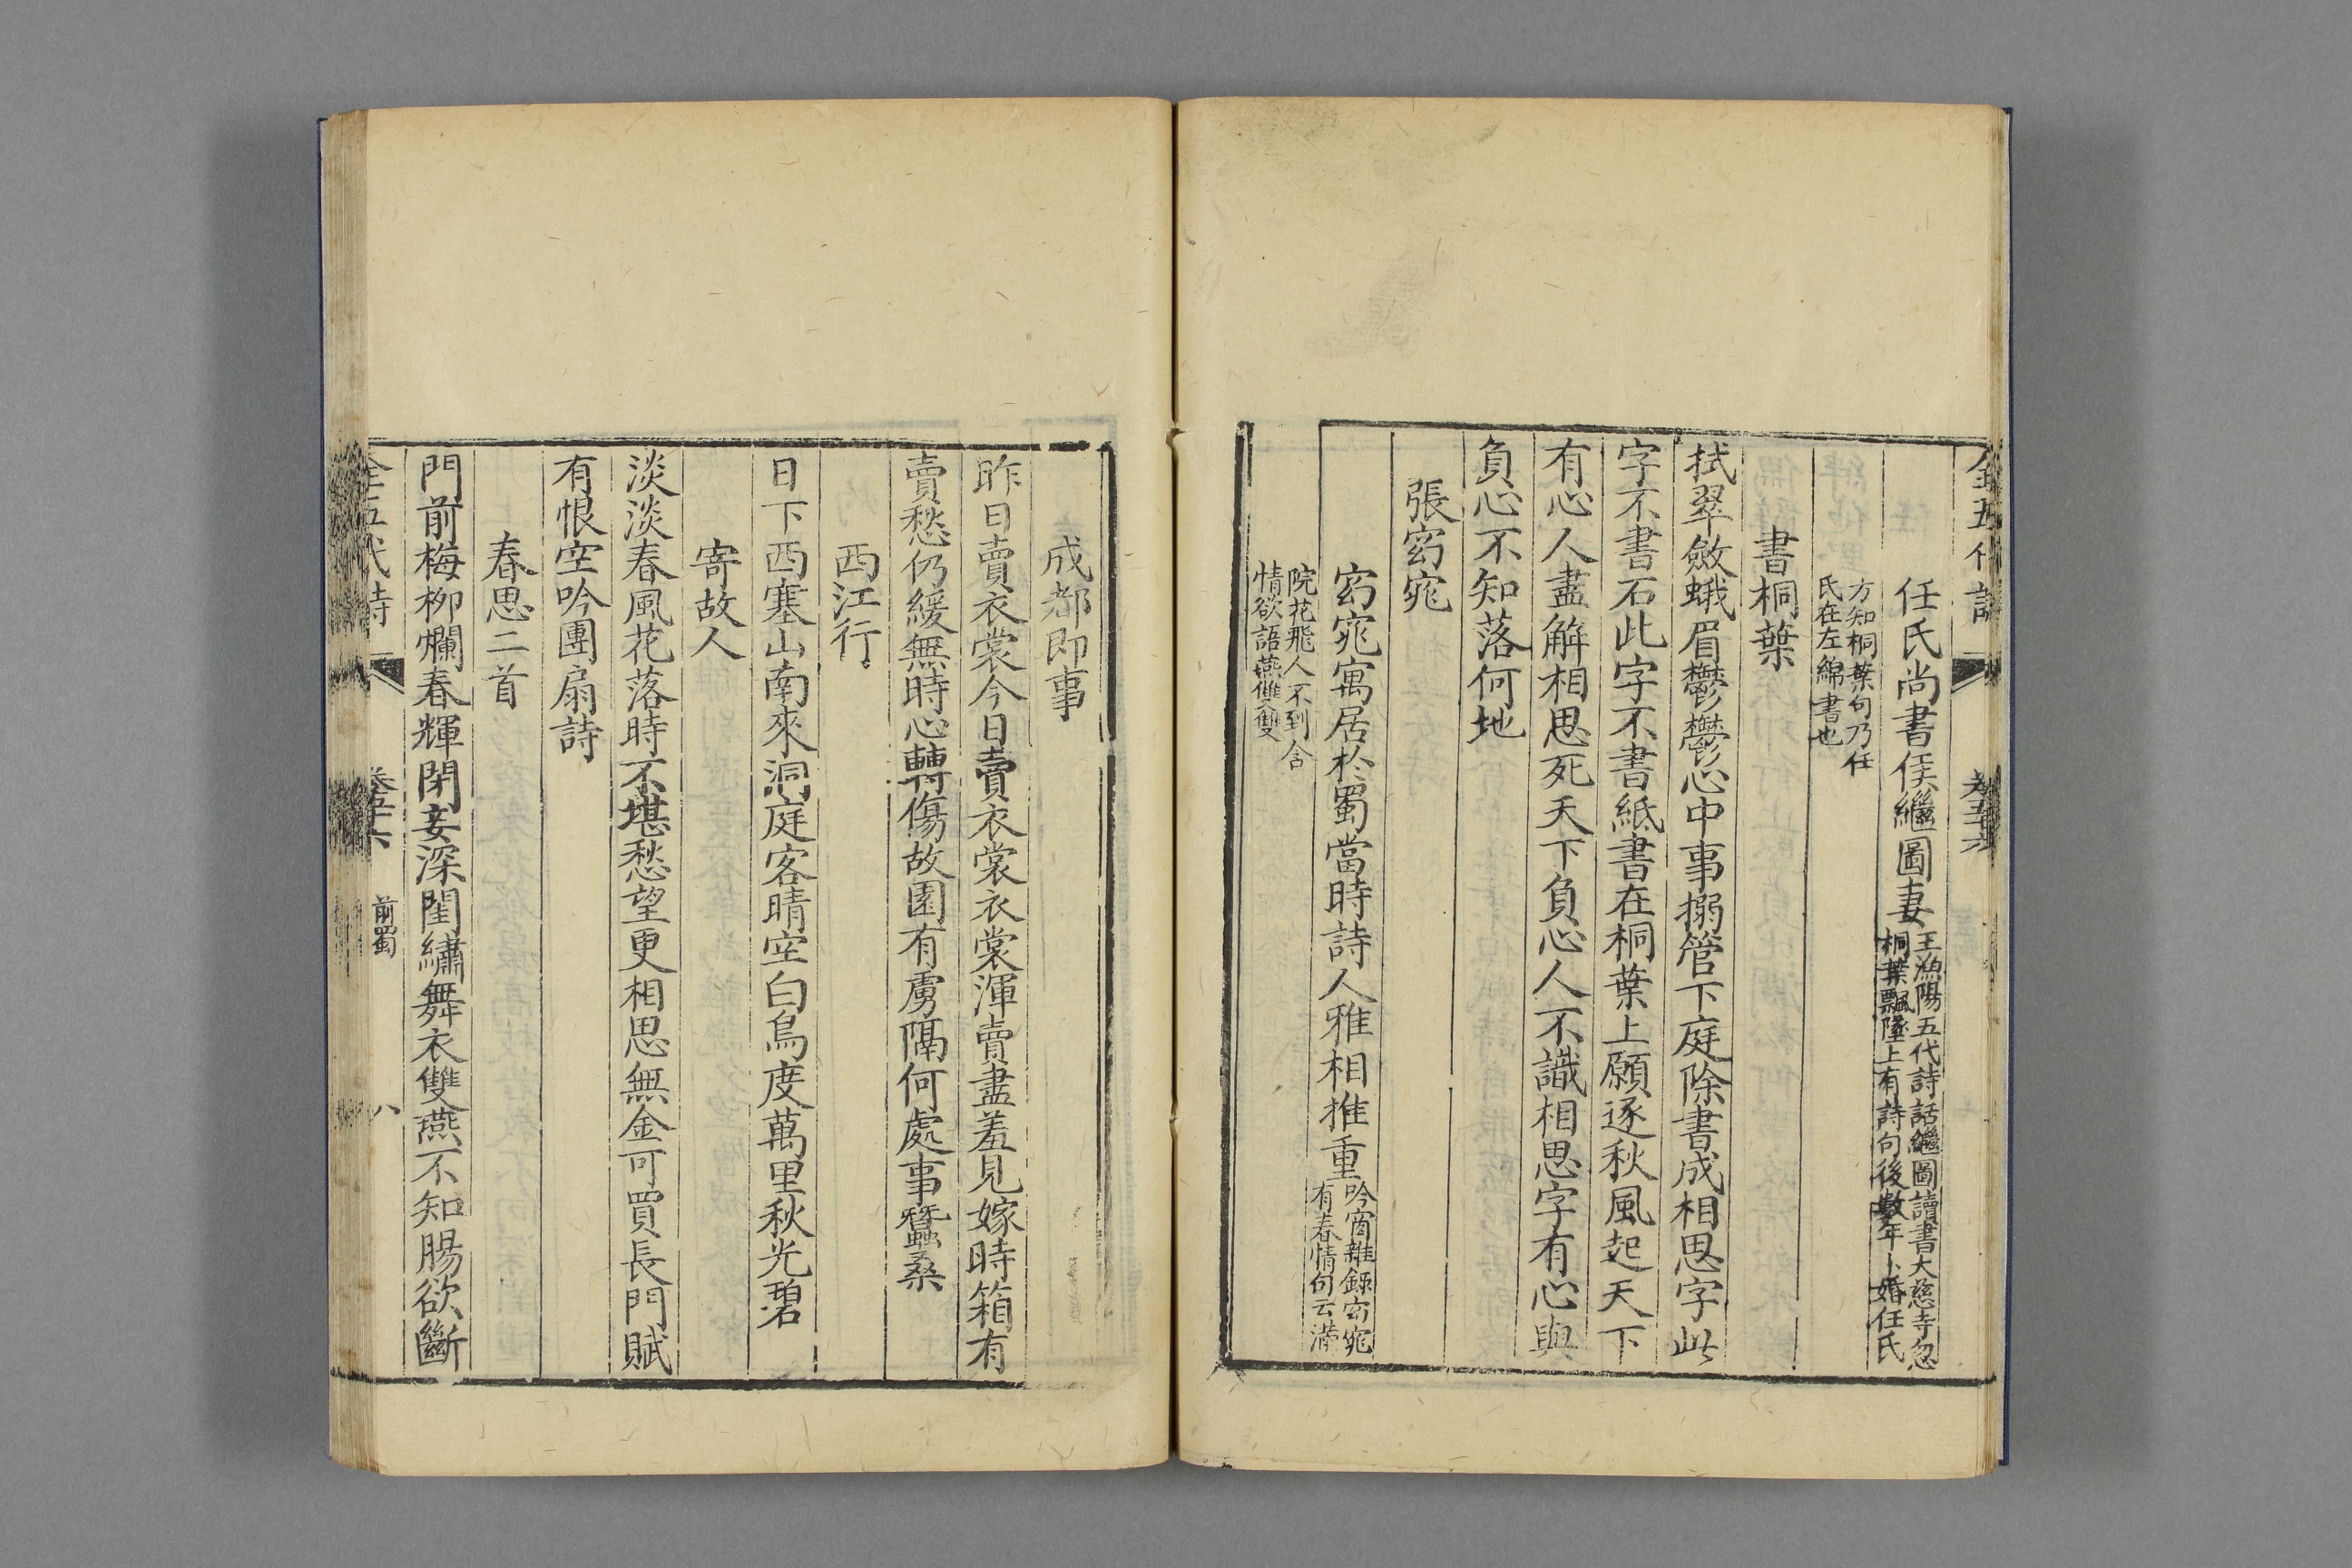 全五代詩
卷五十六
任氏尚書侯繼圖妻王漁陽五代詩話繼圖讀書大慈寺忽
桐葉飄墜上有詩句後數年卜婚任氏
方知桐葉句乃任
氏在左綿書也
書桐葉
拭翠斂蛾眉鬱鬱心中事搦管下庭除書成相思字此
字不書石此字不書紙書在桐葉上願逐秋風起天下
有心人盡解相思死天下負心人不識相思字有心與
負心不知落何地
張窈窕
窈窕寓居於蜀當時詩人雅相推重吟窗雜錄窈窕
有春情句云滿
院花飛人不到含
情欲語燕雙雙
成都即事
昨日賣衣裳今日賣衣裳衣裳渾賣盡羞見嫁時箱有
賣愁仍緩無時心轉傷故園有虜隔何處事蠶桑
西江行
日下西塞山南來洞庭客晴空白鳥度萬里秋光碧
寄故人
淡淡春風花落時不堪愁望更相思無金可買長門賦
有恨空吟團扇詩
春思二首
門前梅柳爛春輝閉妾深閨繡舞衣雙燕不知腸欲斷
全五代詩
卷五十六
前蜀
八